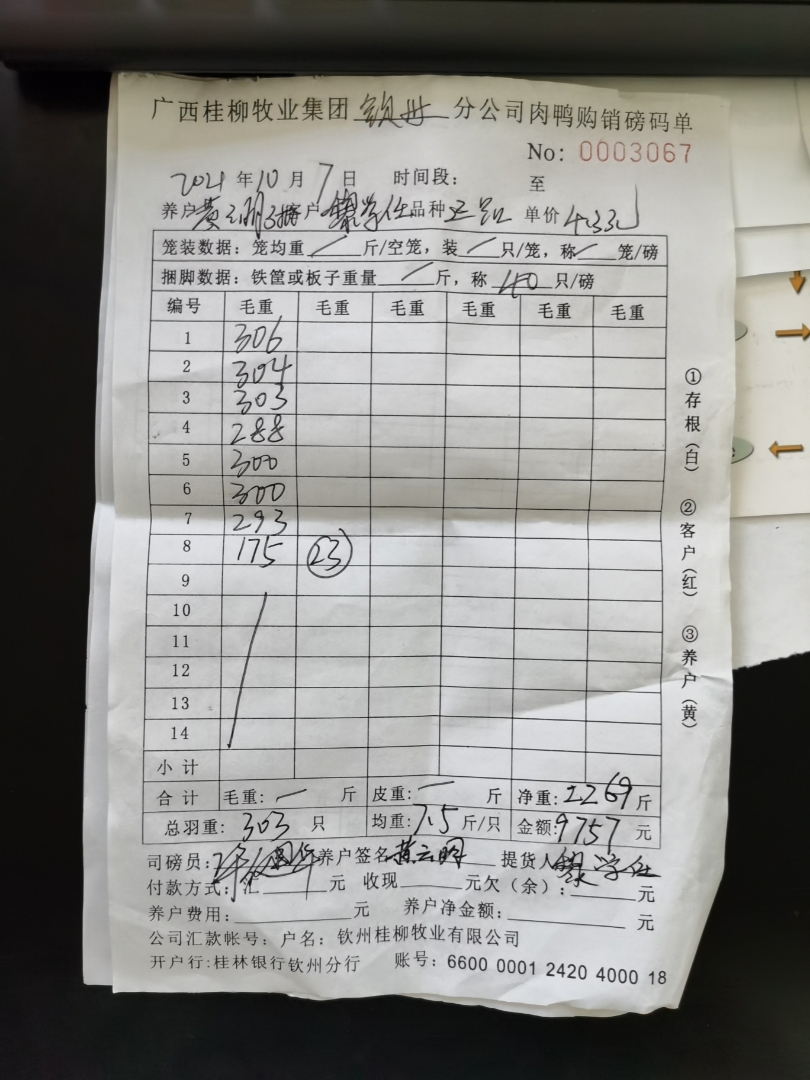 广西桂柳牧业集团 钦州 分公司肉鸭购销磅码单
No: 0003067
2021 年 10 月 7 日 时间段: 至
养户 黄云明 客户 学仕 品种 单价 4.3
笼装数据: 笼均重 / 斤/空笼, 装 / 只/笼, 称 / 笼/磅
捆脚数据: 铁筐或板子重量 / 斤, 称 40 只/磅
编号 毛重 毛重 毛重 毛重 毛重 毛重
1 306
2 304
3 303
4 288
5 300
6 300
7 293
8 175 23
9
10
11
12
13
14
小计
合计 毛重: 一 斤 皮重: 一 斤 净重: 2269 斤
总羽重: 303 只 均重: 7.5 斤/只 金额: 9757 元
司磅员: 养户签名 黄云明 提货人 学仕
付款方式: 汇 元 收现 元欠(余): 元
养户费用: 元 养户净金额: 元
公司汇款帐号: 户名: 钦州桂柳牧业有限公司
开户行:桂林银行钦州分行 账号: 6600 0001 2420 4000 18
①存根(白) ②客户(红) ③养户(黄)